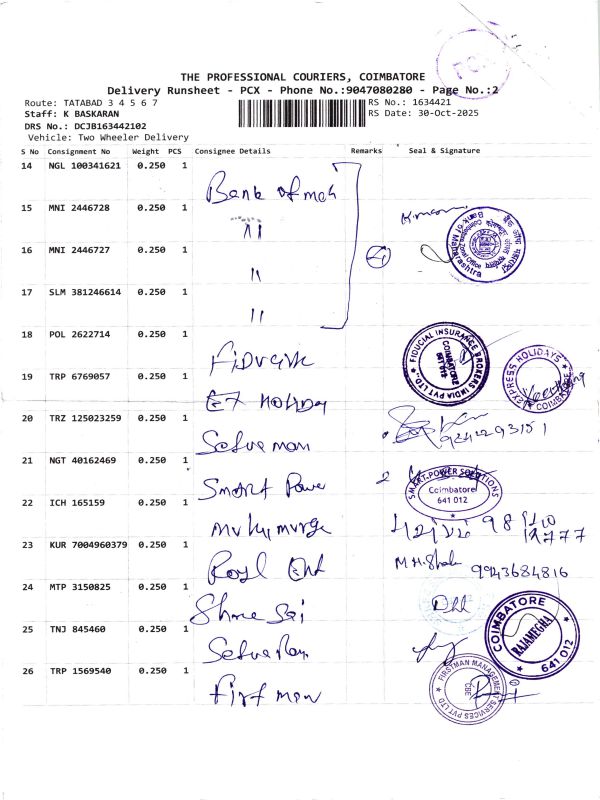 THE PROFESSIONAL COURIERS, COIMBATORE
Delivery Runsheet - PCX - Phone No.:9047080280 - Page No.:2
Route: TATABAD 3 4 5 6 7
RS No.: 1634421
Staff: K BASKARAN
RS Date: 30-Oct-2025
DRS No.: DCJB163442102
Vehicle: Two Wheeler Delivery
S No Consignment No Weight PCS Consignee Details Remarks Seal & Signature
14 NGL 100341621 0.250 1 Bank of mah
15 MNI 2446728 0.250 1 "
16 MNI 2446727 0.250 1 "
Bank of Maharashtra
Coimbatore Zonal Office
17 SLM 381246614 0.250 1 "
④
18 POL 2622714 0.250 1
FIDUCIAL INSURANCE BROKERS INDIA PVT LTD.,
COIMBATORE
641 012
19 TRP 6769057 0.250 1 Ex Holiday
EXPRESS HOLIDAYS
COIMBATORE
20 TRZ 125023259 0.250 1 Selvaman
21 NGT 40162469 0.250 1 Smart Power
SMART POWER SOLUTIONS
Coimbatore
641 012
22 ICH 165159 0.250 1
23 KUR 7004960379 0.250 1 Royl
9943684816
24 MTP 3150825 0.250 1 Shree Sai
COIMBATORE
RAJAMEGHA
641 012
25 TNJ 845460 0.250 1
26 TRP 1569540 0.250 1 First man
FIRSTMAN MANAGEMENT SERVICES PVT LTD
CBE